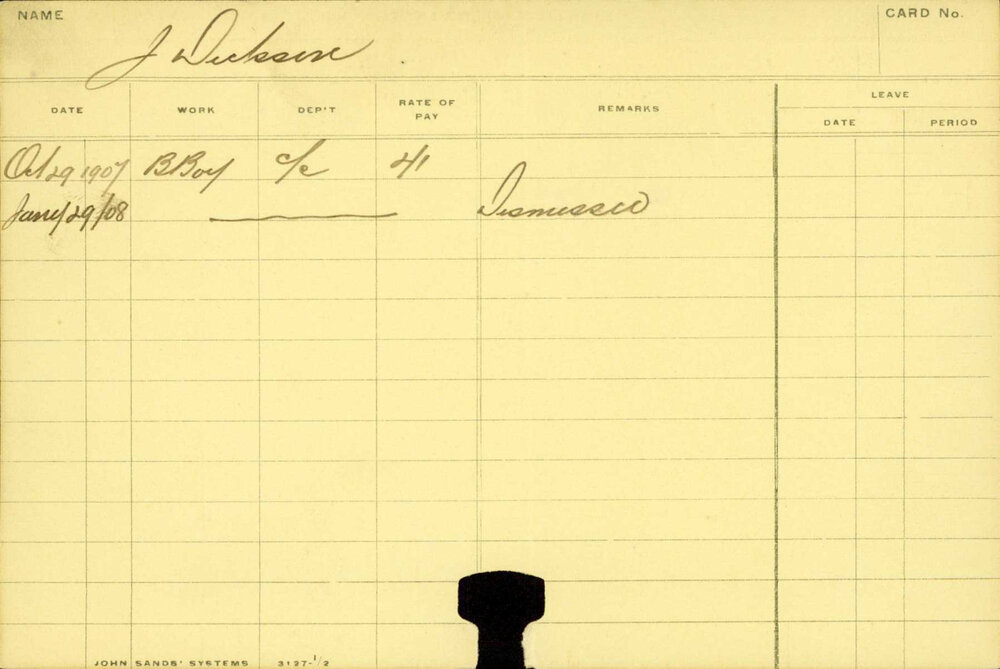 NAME
CARD No.
J Dickson
DATE WORK DEP'T RATE OF PAY REMARKS LEAVE
DATE PERIOD
Oct 29 1907 BBoy c/c 4/1
Jany 29/08 Dismissed
JOHN SANDS' SYSTEMS 3127-1/2